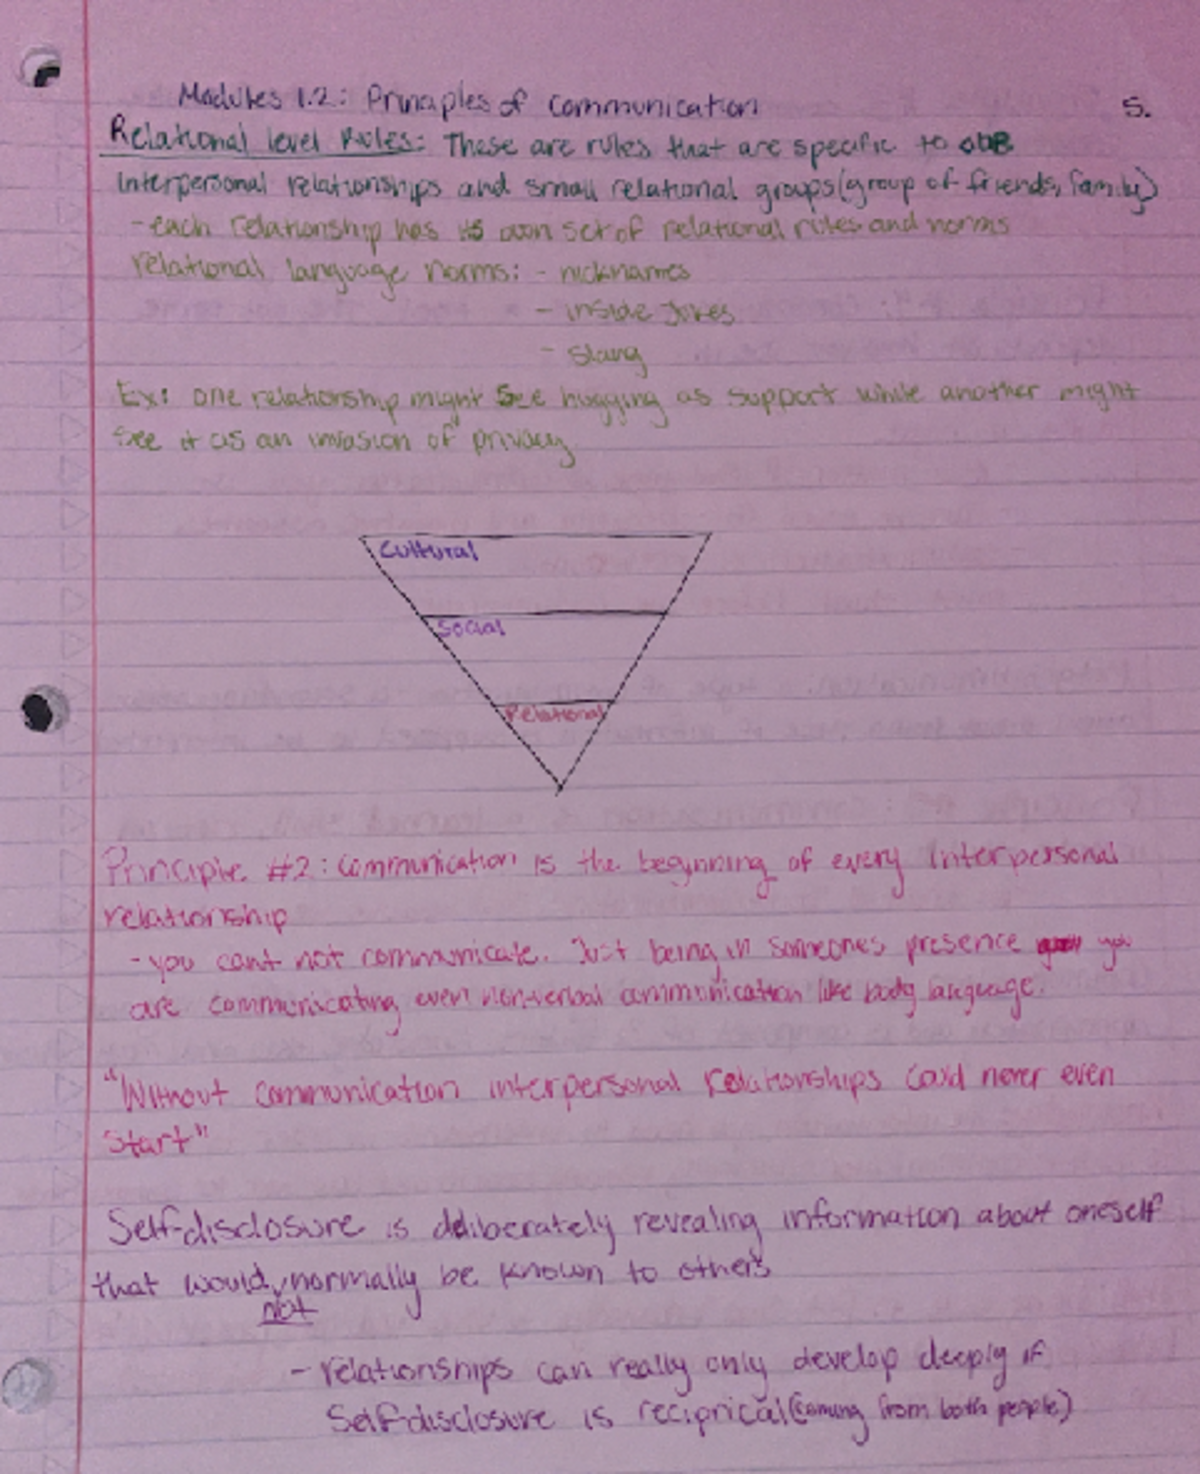 Modules 1.2: Principles of communication
5.
Relational level Rules: These are rules that are specific to our
interpersonal relationships and small relational groups (group of friends, family)
- each relationship has its own set of relational rules and norms
relational language norms: - nicknames
- inside jokes
- slang
Ex: one relationship might see hugging as support while another might
see it as an invasion of privacy
Cultural
Social
Relational
Principle #2: communication is the beginning of every interpersonal
relationship
- you cant not communicate. Just being in someones presence you
are communicating even non-verbal communication like body language.
"Without communication interpersonal relationships could never even
start"
Self-disclosure is deliberately revealing information about oneself
that would not normally be known to others
- relationships can really only develop deeply if
self-disclosure is reciprical (coming from both people)